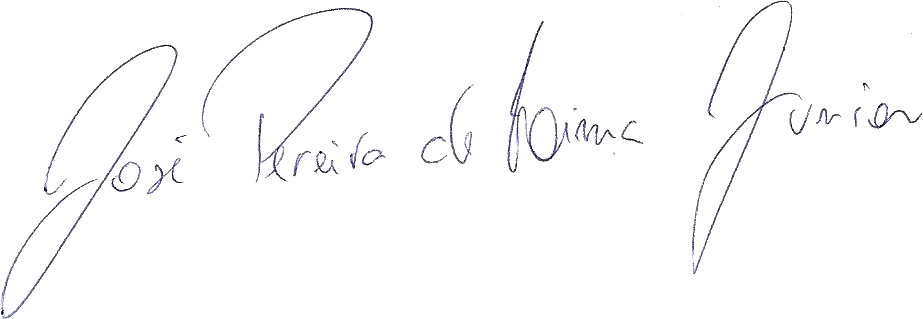 José Pereira de Junior